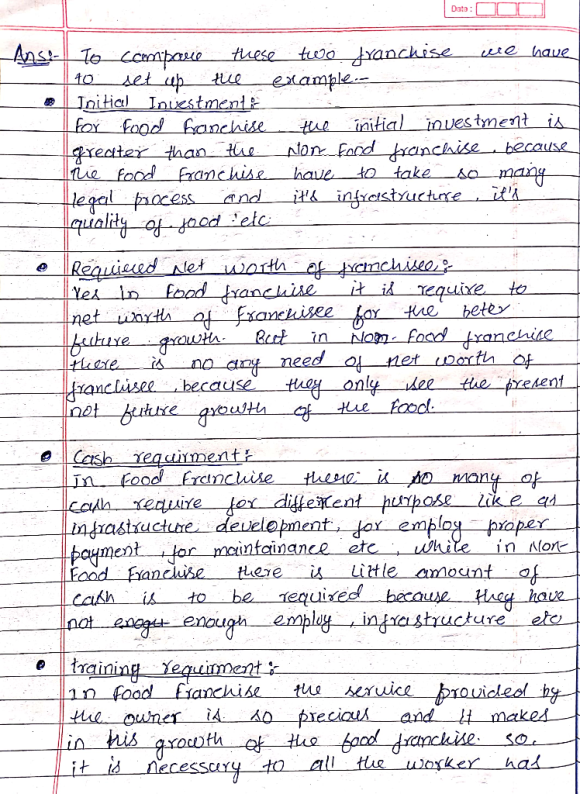 Date :
Ans:- To compare these two franchise we have
to set up the example:-
Initial Investment :
For Food franchise the initial investment is
greater than the Non-Food franchise, because
the Food Franchise have to take so many
legal process and it's infrastructure, it's
quality of food etc
Requiered Net worth of franchisee :
Yes In Food franchise it is require to
net worth of Franchisee for the beter
future growth. But in Non-Food franchise
there is no any need of net worth of
franchisee, because they only see the present
not future growth of the Food.
Cash requirment :
In Food Franchise there is so many of
cash require for different purpose like as
infrastructure development, for employ proper
payment, for maintainance etc, while in Non-
Food Franchise there is Little amount of
cash is to be required because they have
not enough employ, infrastructure etc
training requirment :
In Food Franchise the service provided by
the owner is so precious and it makes
in his growth of the food franchise. So,
it is necessary to all the worker has